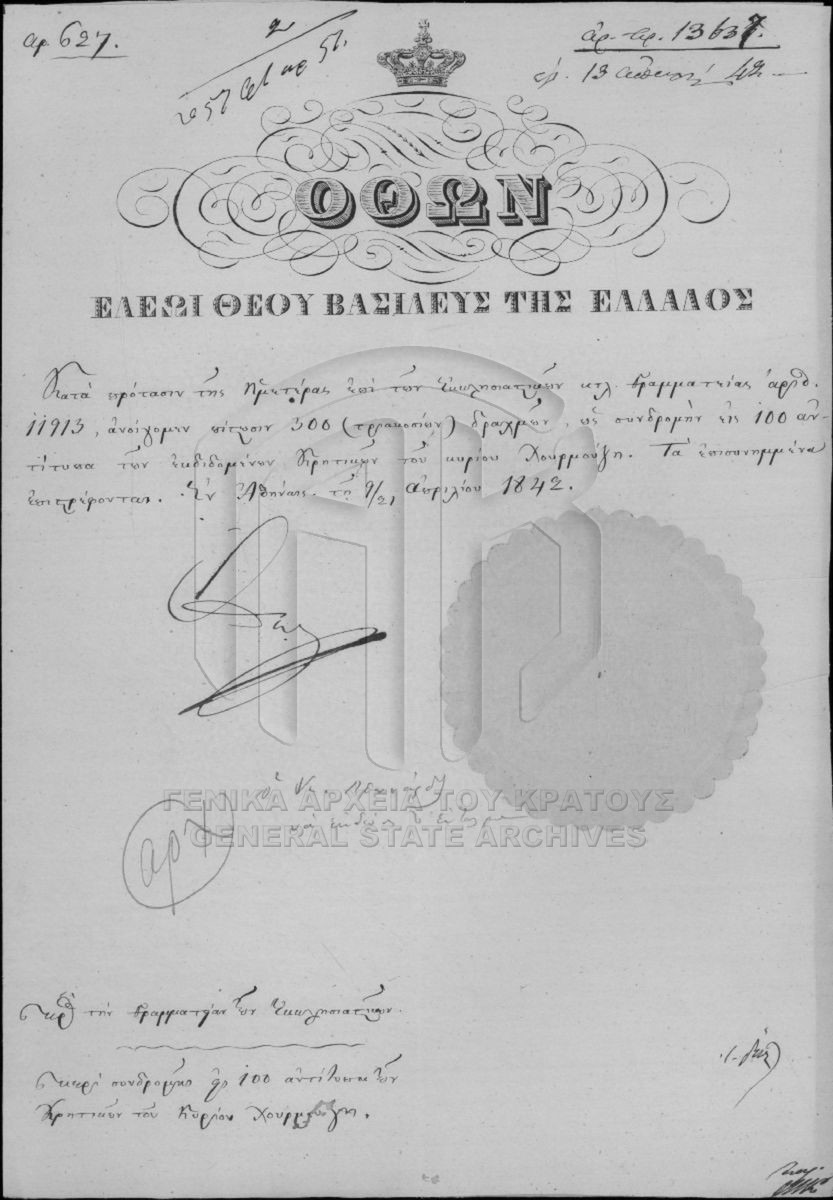 αρ. 627.
ἀρ. πρ. 13637.
ΟΘΩΝ
ΕΛΕΩΙ ΘΕΟΥ ΒΑΣΙΛΕΥΣ ΤΗΣ ΕΛΛΑΔΟΣ
Κατὰ πρότασιν τῆς Ἡμετέρας ἐπὶ τῶν Ἐκκλησιαστικῶν κτλ. Γραμματείας ἀριθ.
11913, ἀνοίγομεν πίστωσιν 300 (τριακοσίων) δραχμῶν, ὡς συνδρομὴν εἰς 100 ἀν-
τίτυπα τῶν ἐκδιδομένων Κρητικῶν τοῦ κυρίου Χουρμούζη. Τὰ ἐπισυνημμένα
ἐπιστρέφονται. Ἐν Ἀθήναις τῇ 9/21 Ἀπριλίου 1842.
ΓΕΝΙΚΑ ΑΡΧΕΙΑ ΤΟΥ ΚΡΑΤΟΥΣ
GENERAL STATE ARCHIVES
τὴν Γραμματείαν τῶν Ἐκκλησιαστικῶν.
περὶ συνδρομῆς εἰς 100 ἀντίτυπα τῶν
Κρητικῶν τοῦ Κυρίου Χουρμούζη.